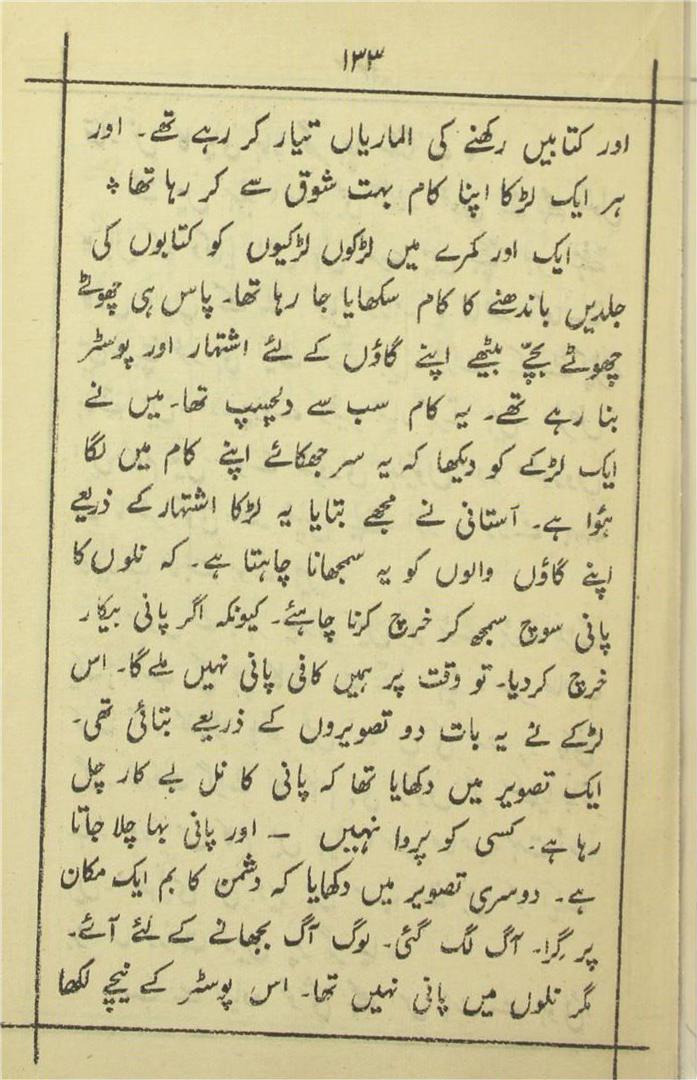 ۱۳۳
اور کتابیں رکھنے کی الماریاں تیار کر رہے تھے۔ اور
ہر ایک لڑکا اپنا کام بہت شوق سے کر رہا تھا ٭
ایک اور کمرے میں لڑکوں لڑکیوں کو کتابوں کی
جلدیں باندھنے کا کام سکھایا جا رہا تھا۔ پاس ہی چھوٹے
چھوٹے بچّے بیٹھے اپنے گاؤں کے لئے اشتہار اور پوسٹر
بنا رہے تھے۔ یہ کام سب سے دلچسپ تھا۔ میں نے
ایک لڑکے کو دیکھا کہ یہ سر جھکائے اپنے کام میں لگا
ہؤا ہے۔ آستانی نے مجھے بتایا یہ لڑکا اشتہار کے ذریعے
اپنے گاؤں والوں کو یہ سمجھانا چاہتا ہے۔ کہ نلوں کا
پانی سوچ سمجھ کر خرچ کرنا چاہئے۔ کیونکہ اگر پانی بیکار
خرچ کردیا۔ تو وقت پر ہمیں کافی پانی نہیں ملے گا۔ اس
لڑکے نے یہ بات دو تصویروں کے ذریعے بتائی تھی۔
ایک تصویر میں دکھایا تھا کہ پانی کا نل بے کار چل
رہا ہے۔ کسی کو پروا نہیں — اور پانی بہا چلا جاتا
ہے۔ دوسری تصویر میں دکھایا کہ دشمن کا بم ایک مکان
پر گِرا۔ آگ لگ گئی۔ لوگ آگ بجھانے کے لئے آئے۔
مگر نلوں میں پانی نہیں تھا۔ اس پوسٹر کے نیچے لکھا